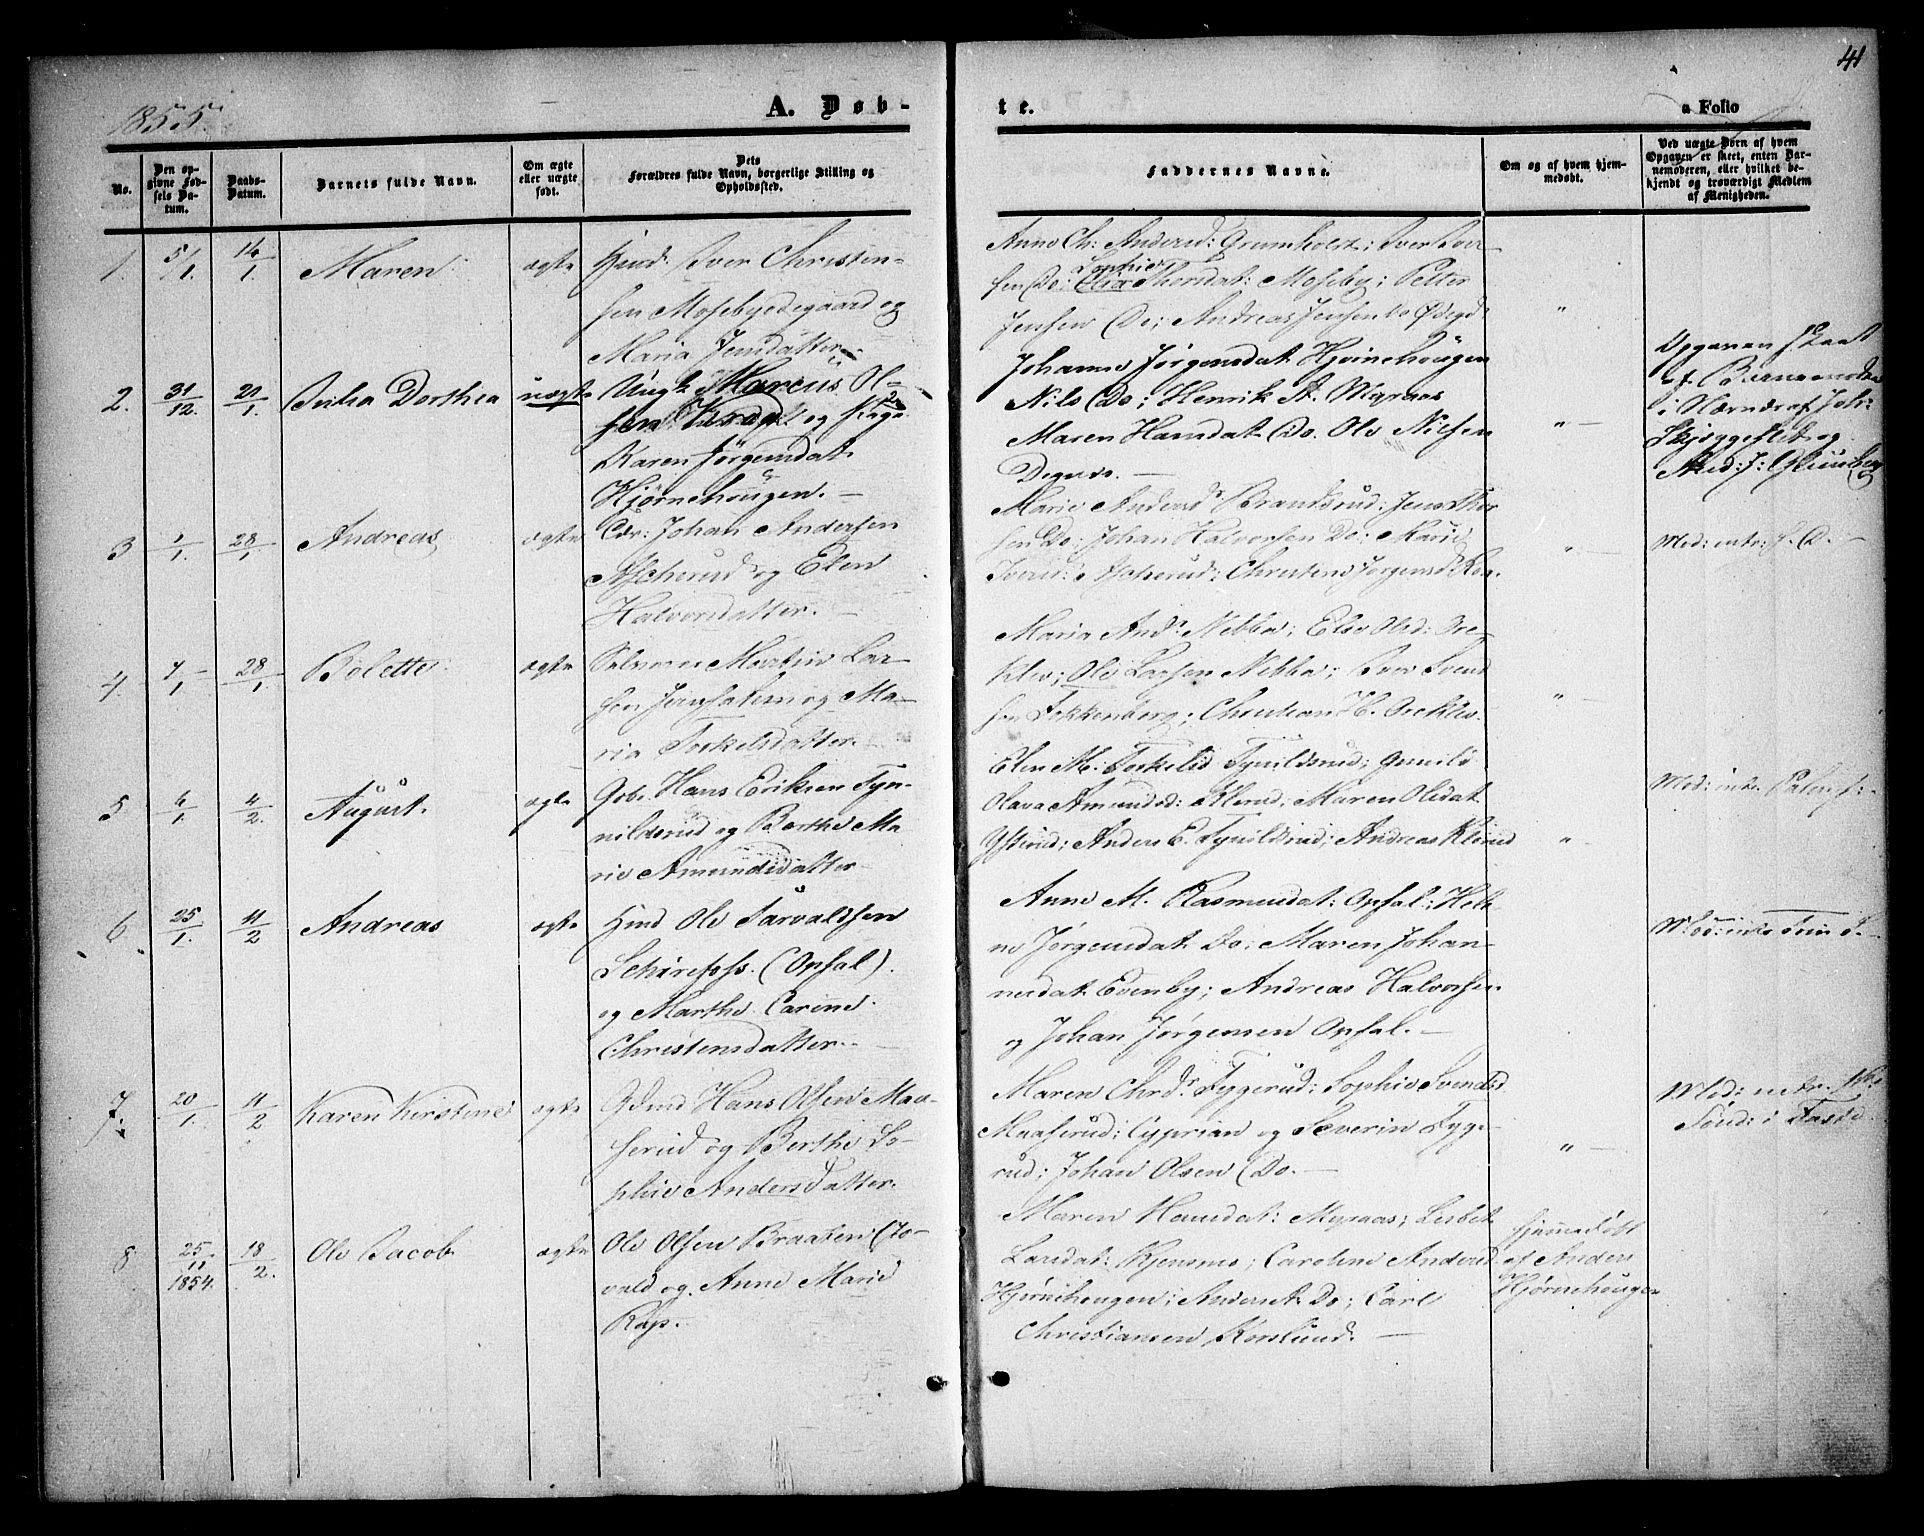 41
1855.
A. Døb-
te.
a Folio
No.
Den op-
givne Fød-
sels Da-
tum.
Daabs-
Datum.
Barnets fulde Navn.
Om ægte
eller uægte
født.
Dets
Forældres fulde Navn, borgerlige Stilling og
Opholdssted.
Faddernes Navne.
Om og af hvem hjem-
medøbt.
Ved uægte Børn af hvem
Opgaven er skeet, enten Bar-
nemoderen, eller hvilket be-
kjendt og troværdigt Medlem
af Menigheden.
1.
5/1.
14/1.
Maren
ægte
Hmd. Iver Christen-
sen Mosebyedegaard og
Maria Jensdatter
Anne Ch: Andersd: Grumholt; Iver Iver-
Sophie
sen Do; Thorsdat: Moseby; Petter
Jensen Do; Andreas Jensen Do Ødegd
"
2.
31/12.
21/1.
Julia Dorthea
uægte
Ungk. Marcus Ol-
sen Krog og Pige
Karen Jørgensdat.
Hjørnehougen.
Johanne Jørgensdat. Hjørnehougen
Nils Do; Henrik A. Myraas
Maren Hansdat. Do. Ole Nilsen
Degnes.
"
Opgaven skeet
af Barnemoder
i Nærvær af Joh:
Skjeggestad og
3
1/1.
28/1
Andreas
ægte
Johan Andersen
Ascherud og Elen
Halvorsdatter.
Marie Andersd. Brandsrud; Jens Thor
sen Do; Johan Halvorsen Do; Marie
Iversd: Ascherud; Christens Jørgensd.
"
4.
7/1
28/1.
Bolette
ægte
Selveier Martin Lar-
sen Jerusalem og Ma-
ria Torkelsdatter.
Maria And. Nebba; Else Olsd: Ore-
klev; Ole Larsen Nebba; Iver Svend
sen Fokkenberg; Christian H. Oreklev.
"
5
4/1
4/2.
August.
ægte
Gbr. Hans Eriksen Tyn-
nildsrud og Berthe Ma
rie Amundsdatter
Elen M. Torkelsd Tynildsrud; Gunild
Olava Amundsd: Klerud; Maren Olsdat.
Ysterud; Anders E. Tynildsrud; Andreas Klerud
"
6.
25/1.
11/2
Andreas
ægte
Hmd Ole Tarvaldsen
Schirefoss (Opsal).
og Marthe Carine
Christensdatter.
Anne M. Rasmusdat: Opsal; Hele
ne Jørgensdat. Do; Maren Johan-
nesdat. Edenby; Andreas Halvorsen
og Johan Jørgensen Opsal.
7.
20/1.
11/2
Karen Kirstine
ægte
Gdmd Hans Olsen Maa-
serud og Berthe So-
phie Andersdatter.
Maren Chrd. Tyggerud; Sophie Svendsd
Maaserud; Cyprian og Severin Tyge-
rud; Johan Olsen Do.
"
8
25/11
1854.
18/2.
Ole Jacob
ægte
Ole Olsen Braaten (To-
vald og Anne Marie
Rap.
Maren Hansdat: Myraas; Lisbet
Larsdat: Kjensmo; Caroline Andersd
Hjørnehougen; Anders A. Do; Carl
Christiansen Korslund.
Hjemmedøbt
af Anders
Hjørnehougen